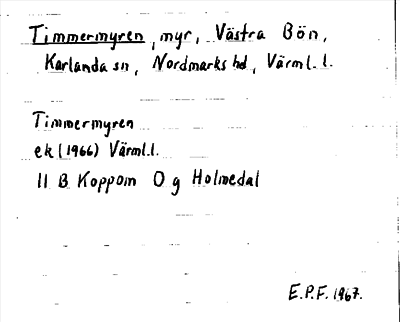 Timmermyren, myr, Västra Bön,
Karlanda sn, Nordmarks hd, Värml. l.
Timmermyren
ek (1966) Värml.l.
11 B Koppom O g Holmedal
E.P.F. 1967.